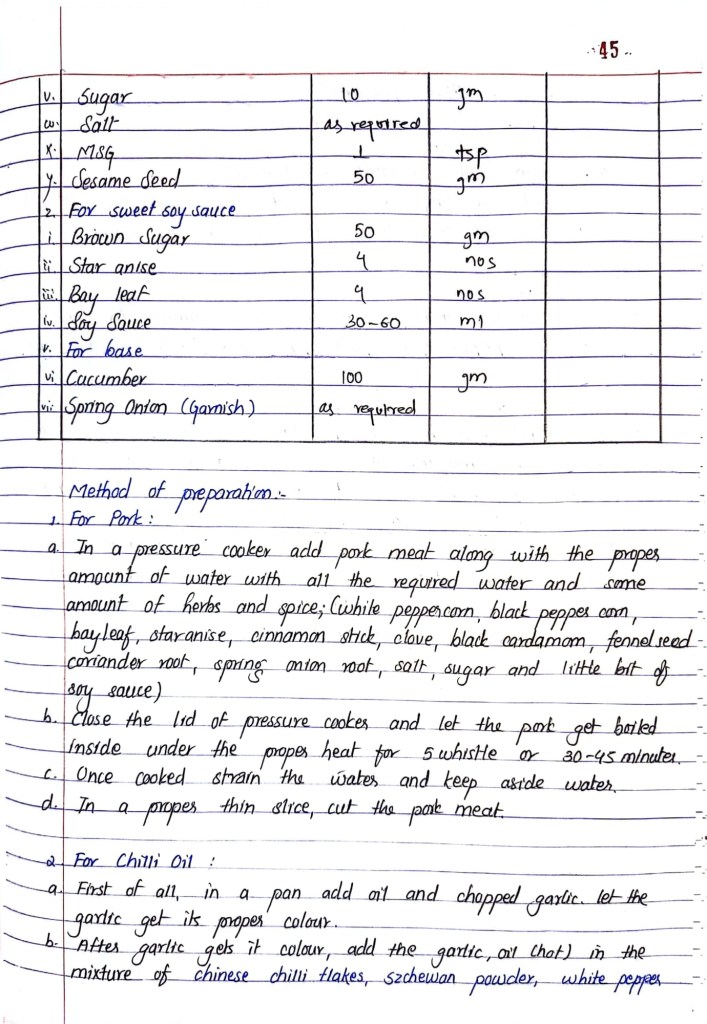 45
v. Sugar 10 gm
w. Salt as required
x. MSG 1 tsp
y. Sesame Seed 50 gm
2. For sweet soy sauce
i. Brown Sugar 50 gm
ii. Star anise 4 nos
iii. Bay leaf 4 nos
iv. Soy Sauce 30-60 ml
v. For base
vi Cucumber 100 gm
vii Spring Onion (Garnish) as required
Method of preparation:-
1. For Pork:
a. In a pressure cooker add pork meat along with the proper
amount of water with all the required water and some
amount of herbs and spice; (white peppercorn, black pepper corn,
bay leaf, star anise, cinnamon stick, clove, black cardamom, fennel seed
coriander root, spring onion root, salt, sugar and little bit of
soy sauce)
b. Close the lid of pressure cooker and let the pork get boiled
inside under the proper heat for 5 whistle or 30-45 minutes.
c. Once cooked strain the water and keep aside water.
d. In a proper thin slice, cut the pork meat.
2. For Chilli Oil :
a. First of all, in a pan add oil and chopped garlic. let the
garlic get its proper colour.
b. After garlic gets it colour, add the garlic, oil (hot) in the
mixture of chinese chilli flakes, szchewan powder, white pepper